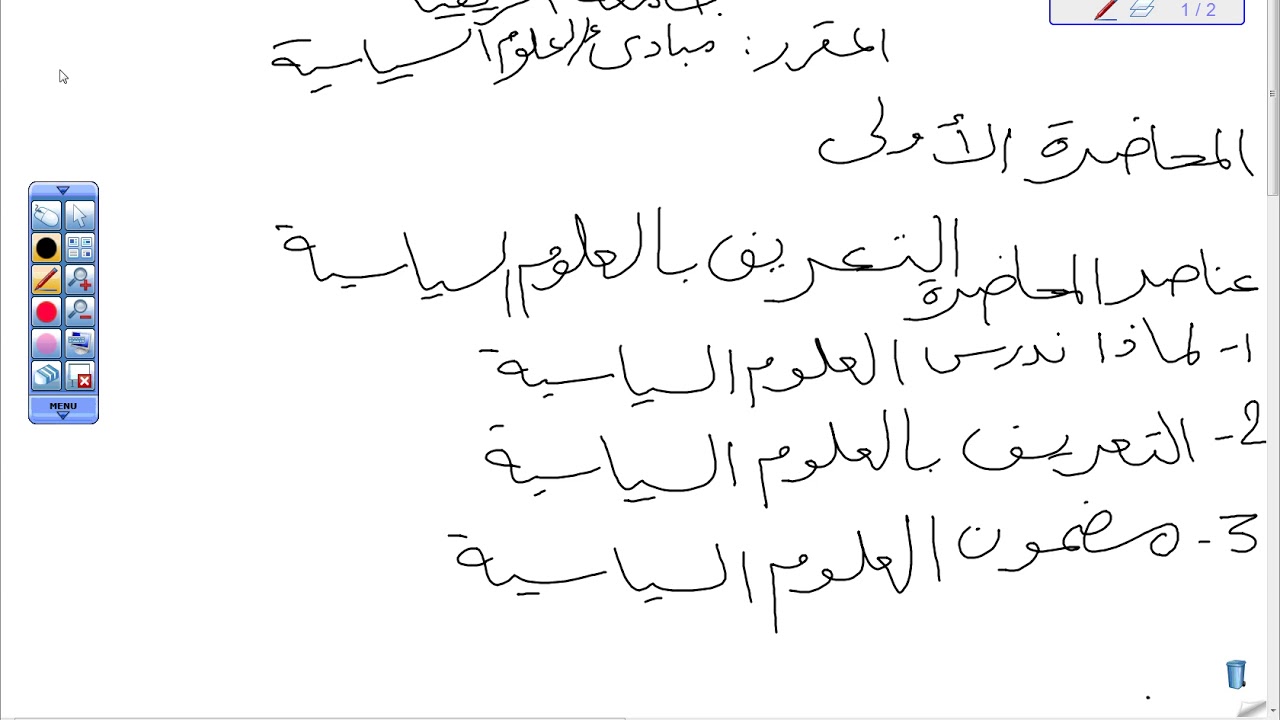 جامعة افريقيا
1 / 2
المقرر: مبادئ العلوم السياسية
المحاضرة الأولى
التعريف بالعلوم السياسية
عناصر المحاضرة
1- لماذا ندرس العلوم السياسية
2- التعريف بالعلوم السياسية
3- مضمون العلوم السياسية
MENU